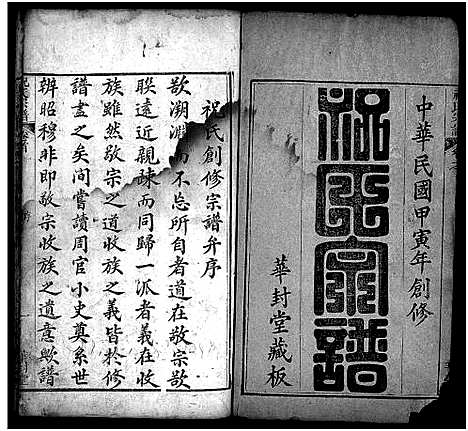 中華民國甲寅年創修
祝氏宗譜
華封堂藏板
祝氏創修宗譜弁序
欲溯淵而不忘所自者道在敬宗欲
聯遠近親疎而同歸一派者義在收
族雖然敬宗之道收族之義皆於修
譜盡之矣间嘗讀周官小史奠系世
辨昭穆非即敬宗收族之遺意歟譜